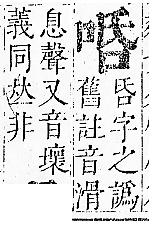 㖧
昬字之譌
舊註音滑
息聲又音壞
義同𠀤非